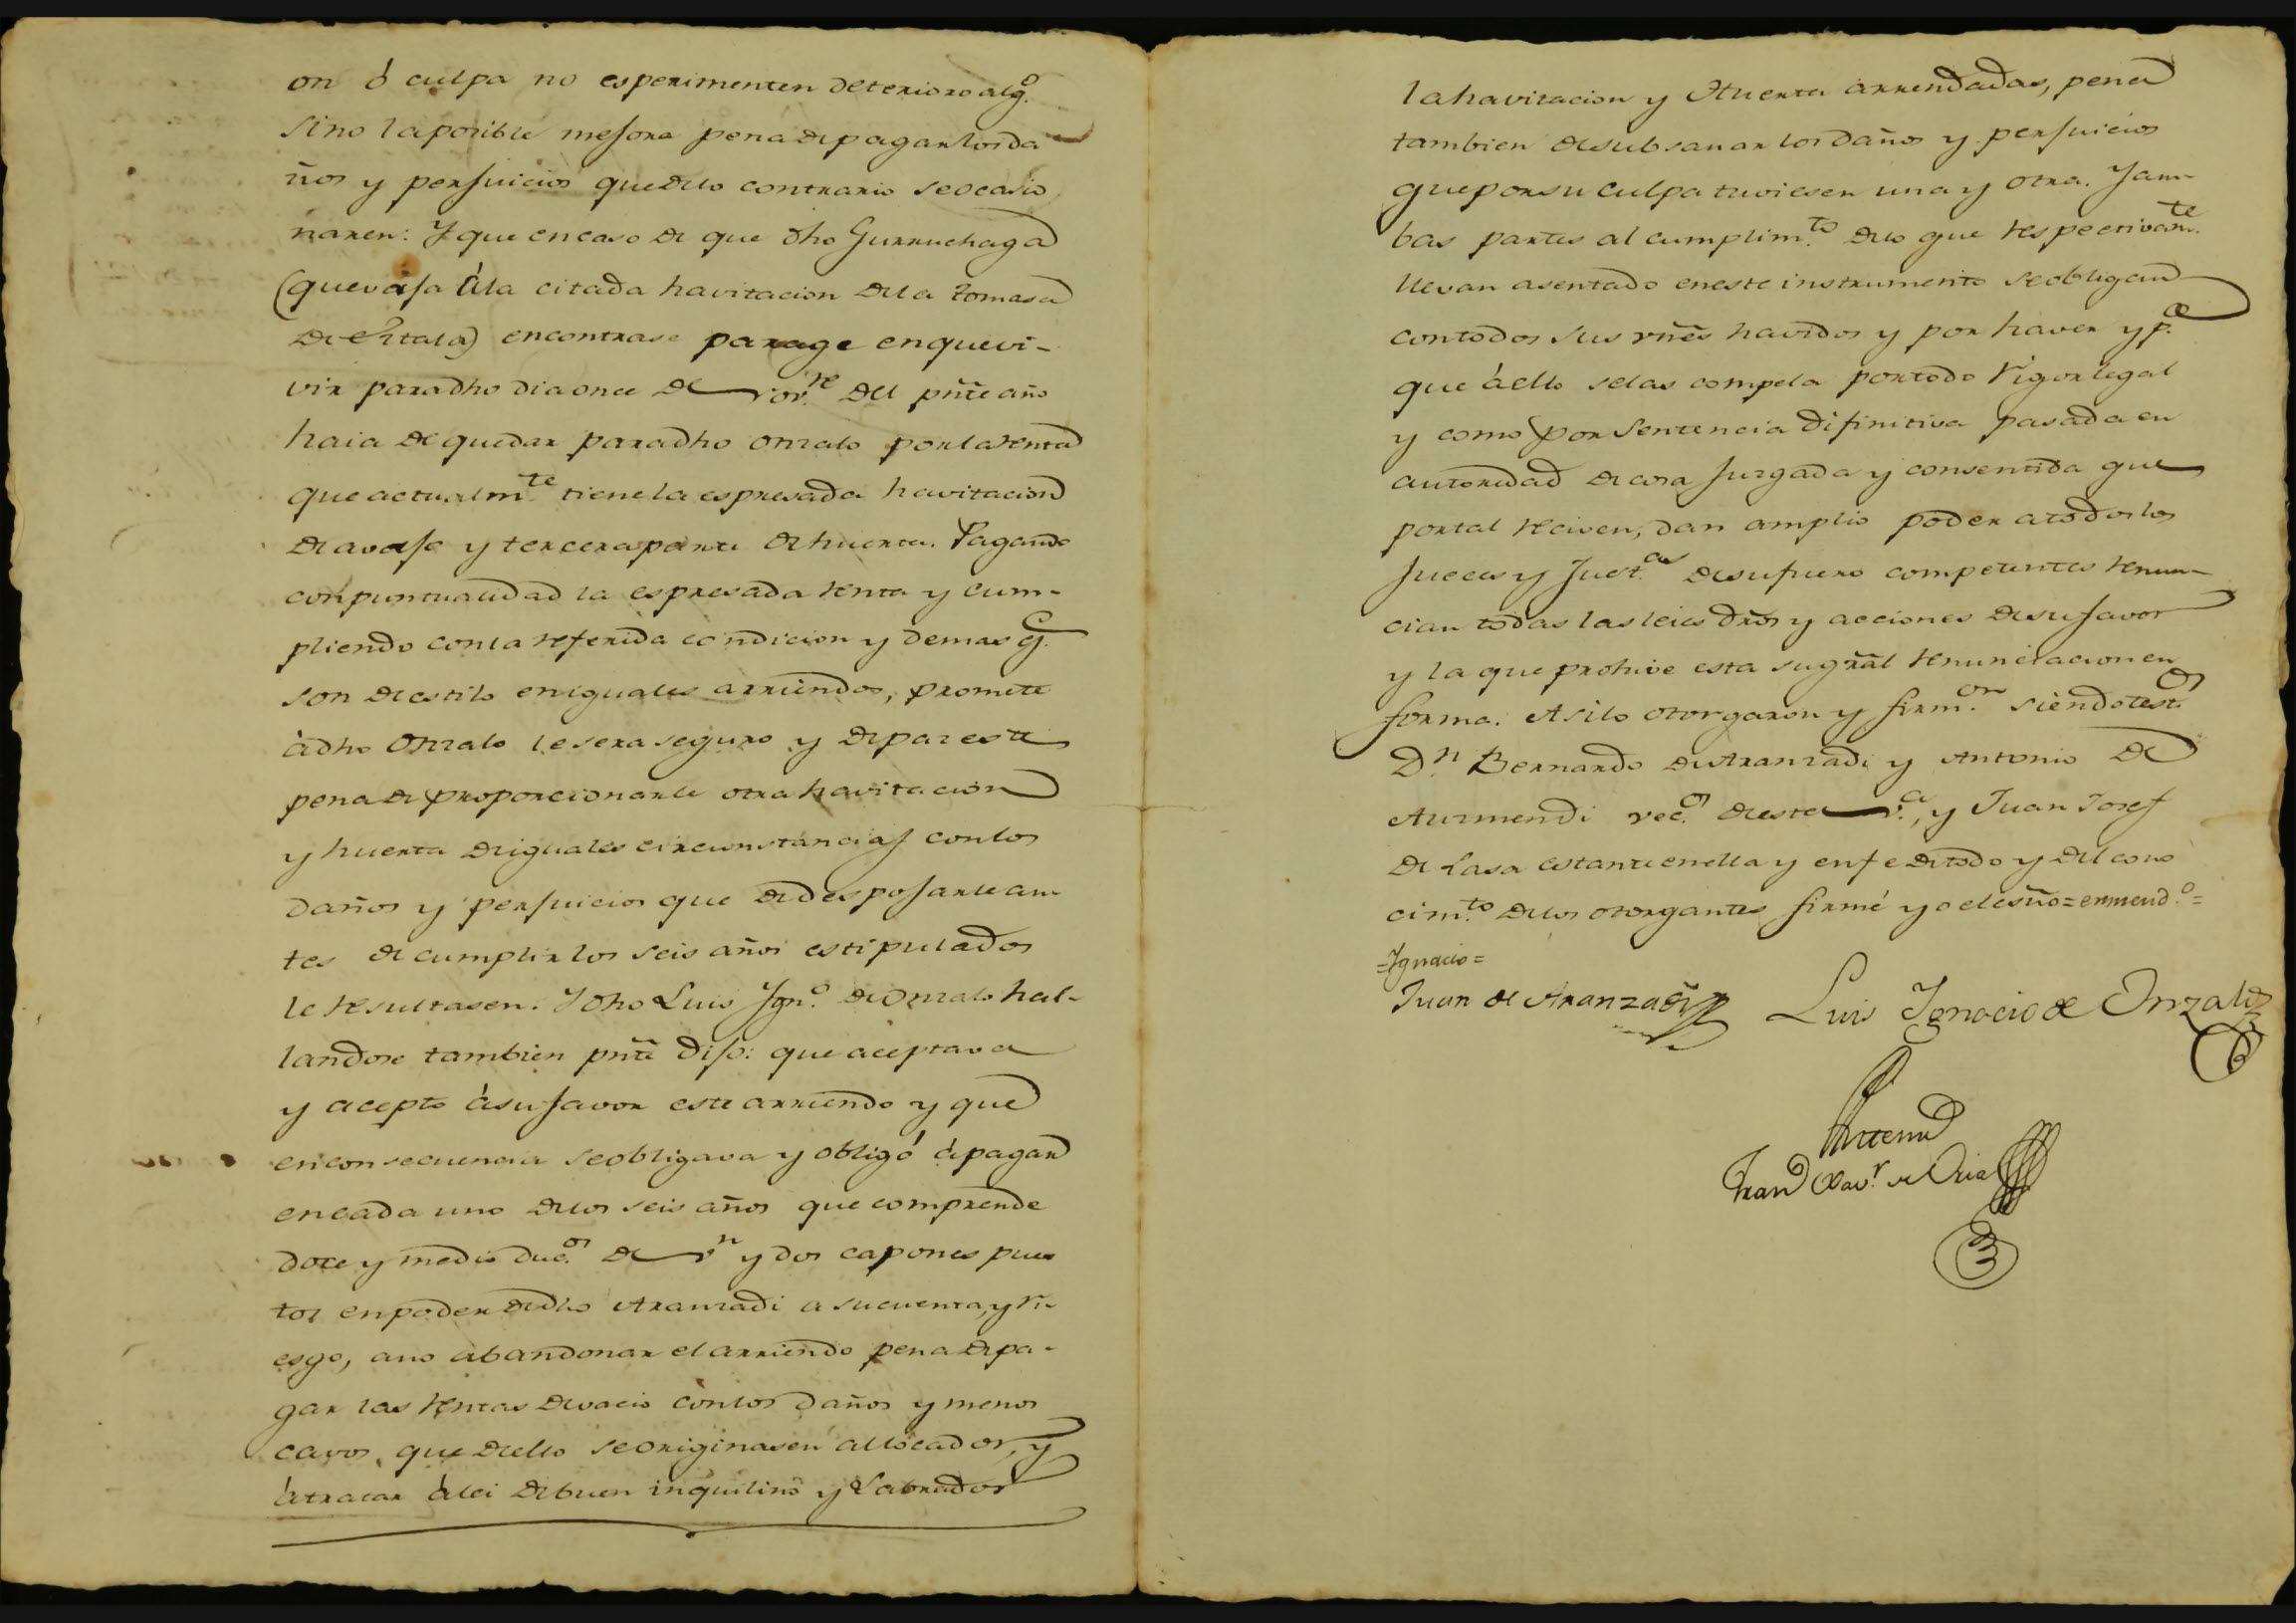 on ó culpa no esperimenten deterioro alg.º
sino la posible mejora pena de pagar los da
ños y perjuicios que de lo contrario se ocasio
naren: Y que en caso de que dho Gurruchaga
(que vaja á la citada havitacion de la Tomasa
de Ertala) encontrase parage en que vi-
vir para dho dia once de Nov.re del pñte año
haia de quedar para dho Onzalo por la renta
que actualm.te tiene la espresada havitacion
de avajo y tercera parte de huerta. Pagando
con puntualidad la espresada renta y cum-
pliendo con la referida condicion y demas q.e
son de estilo en iguales arriendos, promete
à dho Onzalo le sera seguro y de paz este
pena de proporcionarle otra havitacion
y huerta de iguales circunstancias con los
daños y perjuicios que de despojarle an
tes de cumplir los seis años estipulados
le resultasen. Y dho Luis Ign.º de Onzalo hal-
landose tambien pñte dijo: que aceptava
y acepto á su favor este arriendo y que
en consecuencia se obligava y obligó à pagar
en cada uno de los seis años que comprende
doce y medio duc.os de v.n y dos capones pues
tos en poder de dho Aranzadi a su cuenta, y ri-
esgo, a no abandonar el arriendo pena de pa-
gar las rentas de vacio con los daños y menos
cavos que de ello se originasen al locador, y
à tratar á lei de buen inquilino y Labrador
la havitacion y Huerta arrendadas, pena
tambien de subsanar los daños y perjuicios
que por su culpa tuviesen una y otra. Y am
bas partes al cumplim.to de lo que respectivam.te
llevan asentado en este instrumento se obligan
con todos sus vñes havidos y por haver y p.a
que á ello se las compela por todo rigor legal
y como por Sentencia difinitiva pasada en
autoridad de cosa juzgada y consentida que
por tal reciven, dan amplio poder a todos los
jueces y Just.as de su fuero competentes renun-
cian todas las leies dr̃os y acciones de su favor
y la que prohive esta su gr̃al renunciacion en
forma. Asi lo otorgaron y firm.on siendo test.os
D.n Bernardo de Aranzadi y Antonio de
Aurmendi vec.os de esta v.a, y Juan Josef
de Lasa estante en ella y en fe de todo y del cono
cim.to de los otorgantes firmé yo el esño = enmend.º =
= Ignacio =
Juan de Aranzadi Luis Ignacio de Onzalo
Antemi
Fran.co Xav.r de Oria